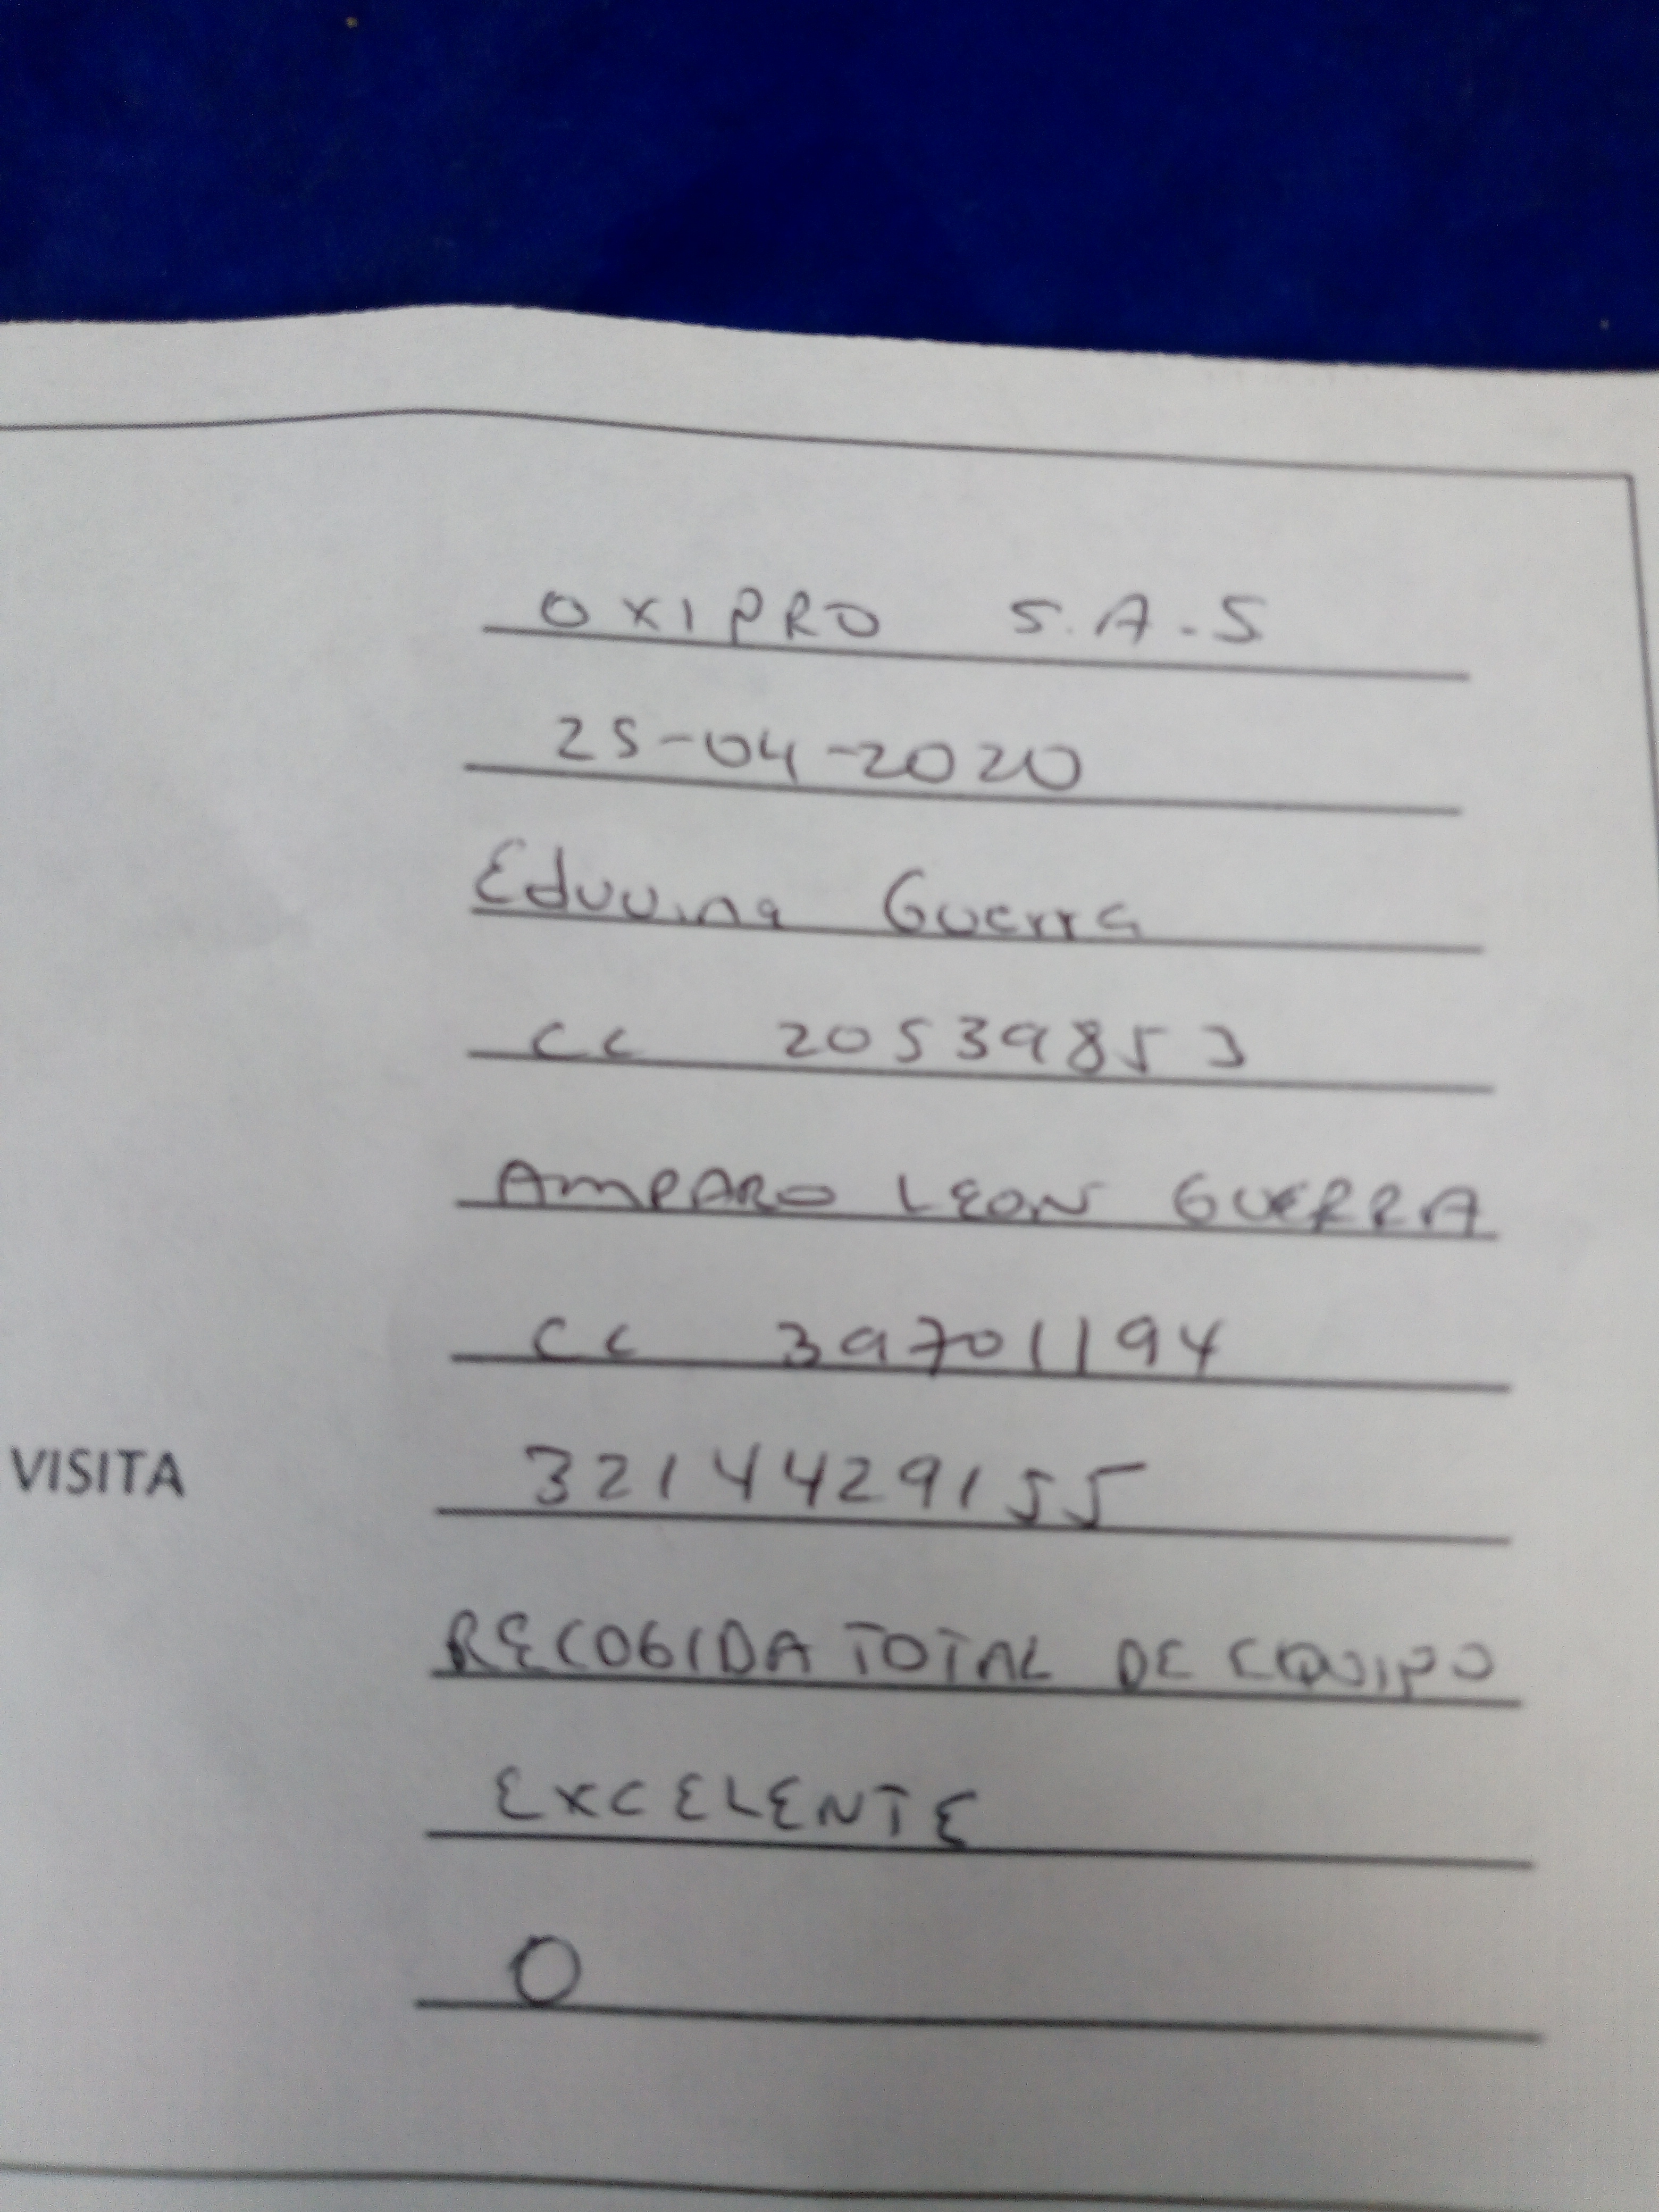 OXIPRO S.A.S
25-04-2020
Eduvina Guerra
CC 20539853
AMPARO LEON GUERRA
CC 39701194
VISITA 3214429155
RECOGIDA TOTAL DE EQUIPO
EXCELENTE
0